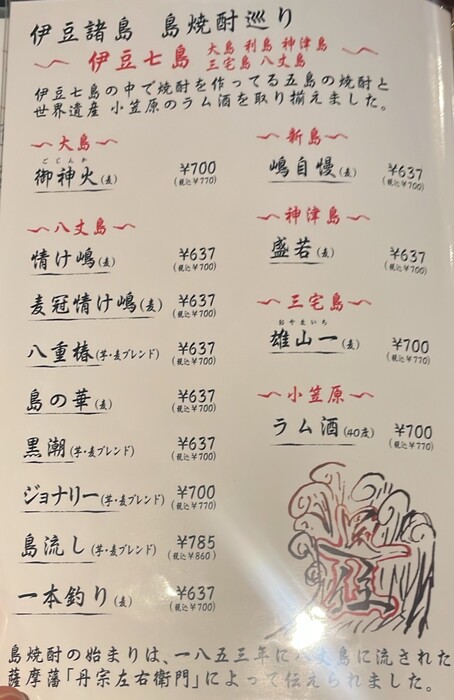 伊豆諸島 島焼酎巡り
〜 伊豆七島 大島 利島 神津島 〜
三宅島 八丈島
伊豆七島の中で焼酎を作ってる五島の焼酎と
世界遺産 小笠原のラム酒を取り揃えました。
〜大島〜
ごじんか
御神火(麦) ¥700
(税込¥770)
〜八丈島〜
情け嶋(麦) ¥637
(税込¥700)
麦冠情け嶋(麦) ¥637
(税込¥700)
八重椿(芋・麦ブレンド) ¥637
(税込¥700)
島の華(麦) ¥637
(税込¥700)
黒潮(芋・麦ブレンド) ¥637
(税込¥700)
ジョナリー(芋・麦ブレンド) ¥700
(税込¥770)
島流し(芋・麦ブレンド) ¥785
(税込¥860)
一本釣り(麦) ¥637
(税込¥700)
〜新島〜
嶋自慢(麦) ¥637
(税込¥700)
〜神津島〜
盛若(麦) ¥637
(税込¥700)
〜三宅島〜
おやまいち
雄山一(麦) ¥700
(税込¥770)
〜小笠原〜
ラム酒(40度) ¥700
(税込¥770)
島焼酎の始まりは、一八五三年に八丈島に流された
薩摩藩「丹宗左右衛門」によって伝えられました。